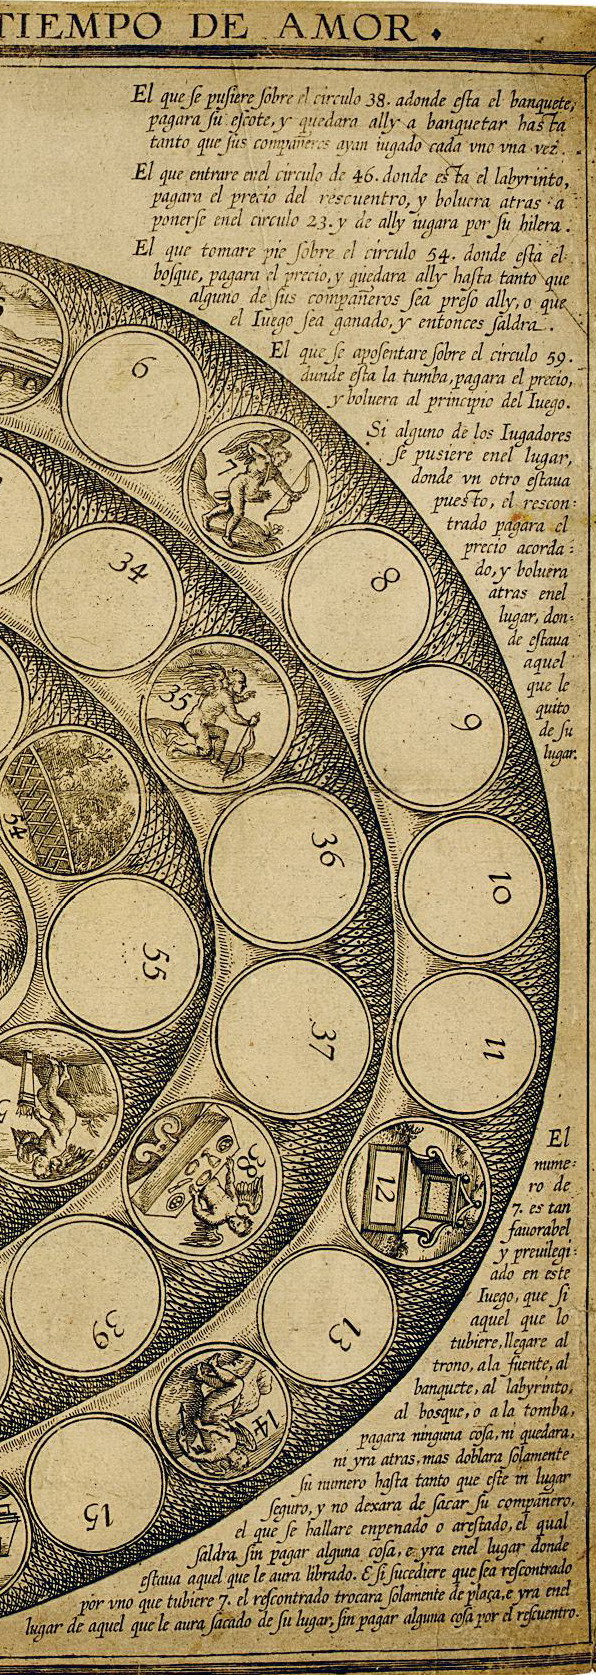 TIEMPO DE AMOR.
El que se pusiere sobre el circulo 38. adonde esta el banquete,
pagara su escote, y quedara ally a banquetar hasta
tanto que sus compañeros ayan iugado cada vno vna vez.
El que entrare enel circulo de 46. donde esta el labyrinto,
pagara el precio del rescuentro, y boluera atras a
ponerse enel circulo 23. y de ally iugara por su hilera.
El que tomare pie sobre el circulo 54. donde esta el
bosque, pagara el precio, y quedara ally hasta tanto que
alguno de sus compañeros sea preso ally, o que
el Iuego sea ganado, y entonces saldra.
El que se aposentare sobre el circulo 59.
dunde esta la tumba, pagara el precio,
y boluera al principio del Iuego.
Si alguno de los Iugadores
se pusiere enel lugar,
donde vn otro estaua
puesto, el rescon:
trado pagara el
precio acorda:
do, y boluera
atras enel
lugar, don:
de estaua
aquel
que le
quito
de su
lugar.
6
7
8
34
9
35
10
36
54
11
55
37
12
38
13
39
14
15
El
nume:
ro de
7. es tan
fauorabel
y preuilegi:
ado en este
Iuego, que si
aquel que lo
tubiere, llegare al
trono, ala fuente, al
banquete, al labyrinto,
al bosque, o a la tomba,
pagara ninguna cosa, ni quedara,
ni yra atras, mas doblara solamente
su numero hasta tanto que este in lugar
seguro, y no dexara de sacar su compañero,
el que se hallare enpenado o arestado, el qual
saldra sin pagar alguna cosa, e yra enel lugar donde
estaua aquel que le aura librado. E si sucediere que sea rescontrado
por vno que tubiere 7. el rescontrado trocara solamente de plaça, e yra enel
lugar de aquel que le aura sacado de su lugar, sin pagar alguna cosa por el rescuentro.